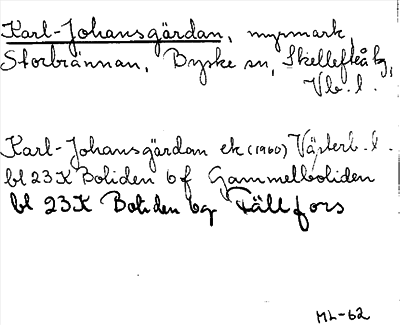 Karl-Johansgärdan, myrmark,
Storbrännan, Byske sn, Skellefteå tg,
Vb. l.
Karl-Johansgärdan ek (1960) Västerb. l.
bl 23K Boliden 6f Gammelboliden
bl 23K Boliden 6g Fällfors
ML-62